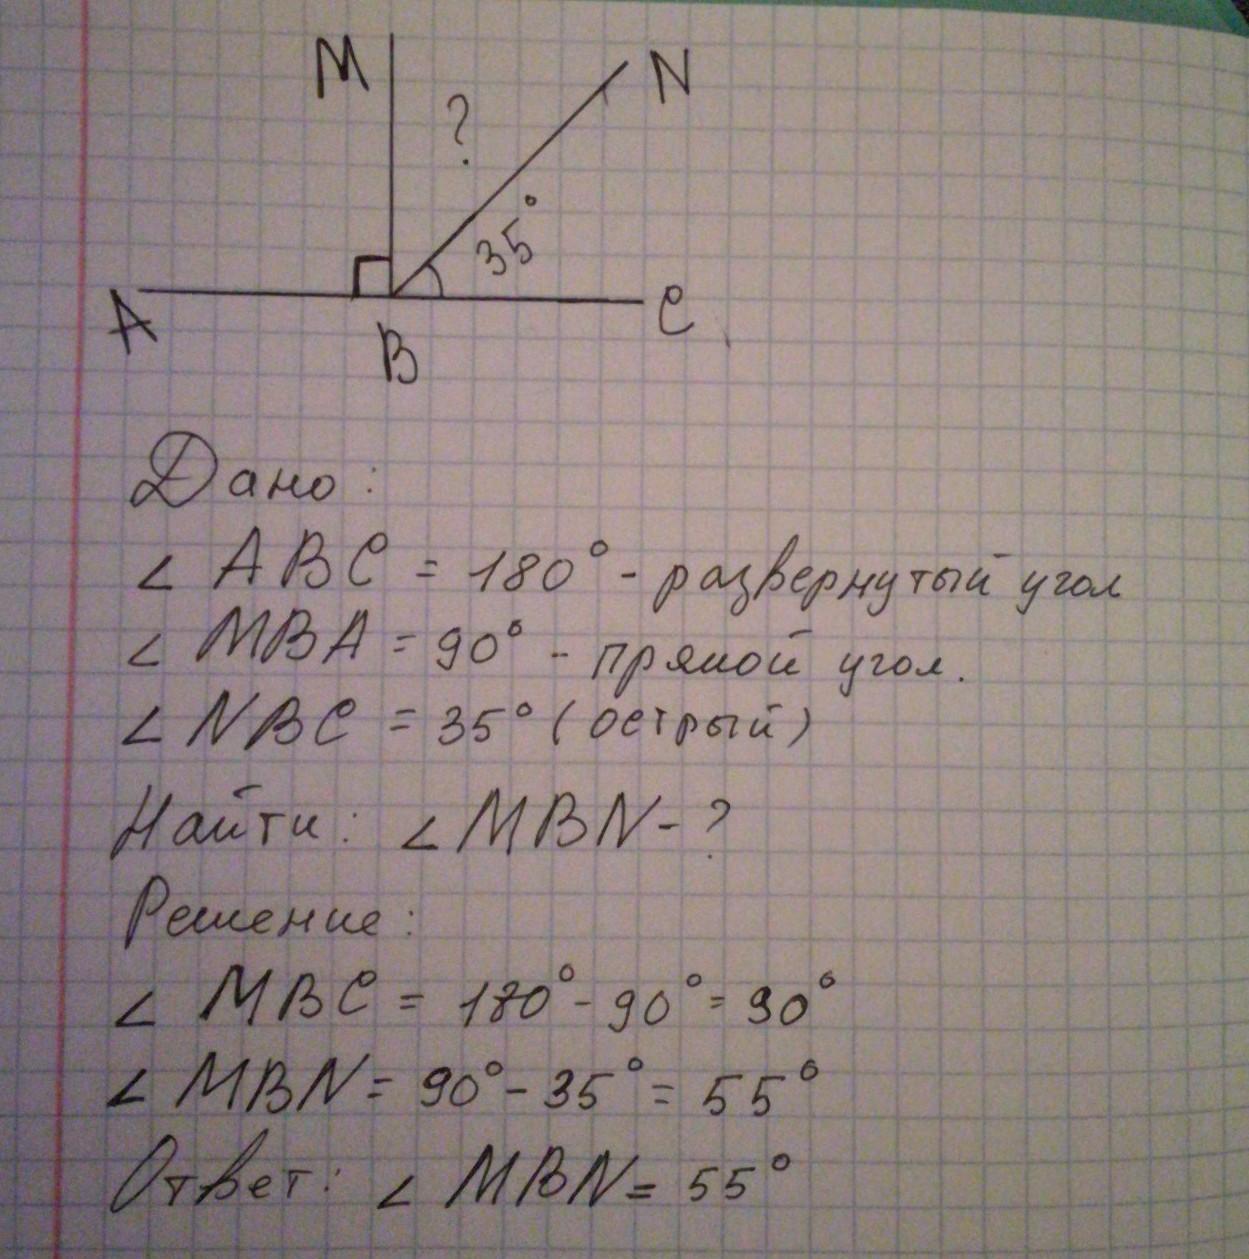 M
N
?
35°
A
B
C
Дано:
∠ ABC = 180° - развернутый угол
∠ MBA = 90° - прямой угол.
∠ NBC = 35° (острый)
Найти: ∠ MBN - ?
Решение:
∠ MBC = 180° - 90° = 90°
∠ MBN = 90° - 35° = 55°
Ответ: ∠ MBN = 55°